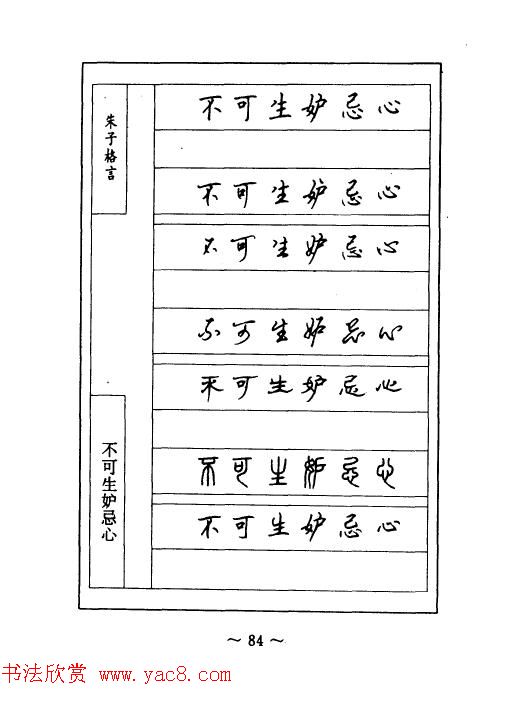 朱子格言
不可生妒忌心
不可生妒忌心
不可生妒忌心
不可生妒忌心
不可生妒忌心
不可生妒忌心
不可生妒忌心
不可生妒忌心
～ 84 ～
书法欣赏 www.yac8.com